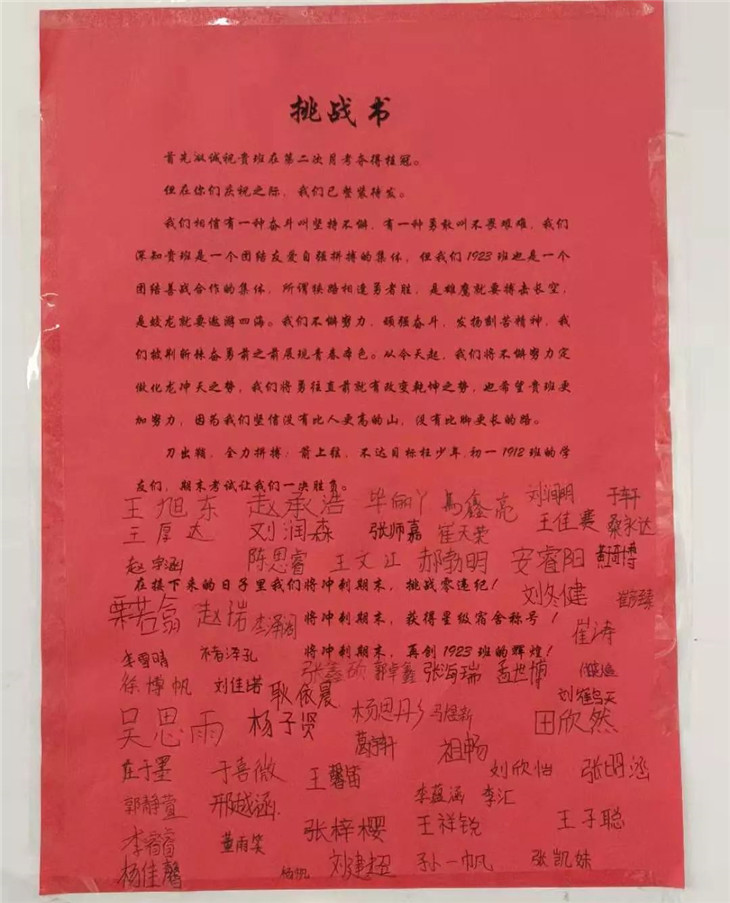 挑战书
首先诚祝贵班在第二次月考夺得桂冠。
但在你们庆祝之际，我们已整装待发。
我们相信有一种奋斗叫坚持不懈，有一种勇敢叫不畏艰难，我们
深知贵班是一个团结友爱自强拼搏的集体，但我们1923班也是一个
团结善战合作的集体，所谓狭路相逢勇者胜，是雄鹰就要搏击长空，
是蛟龙就要遨游四海。我们不懈努力，顽强奋斗，发扬刻苦精神，我
们披荆斩棘奋勇前之前展现青春本色。从今天起，我们将不懈努力定
做化龙冲天之势，我们将勇往直前就有改变乾坤之势，也希望贵班更
加努力，因为我们坚信没有比人更高的山，没有比脚更长的路。
刀出鞘，全力拼搏；箭上弦，不达目标枉少年，初一1912班的学
友们，期末考试让我们一决胜负。
王旭东 赵承浩 毕俪丫 马鑫亮 刘润明 于轩
王厚达 刘润森 张师嘉 崔天荣 王佳赛 桑永达
赵宇涵 陈思睿 王文江 郝勃明 安睿阳
在接下来的日子里我们将冲刺期末，挑战零违纪！
刘冬健
栗若翕 赵瑞 将冲刺期末，获得星级宿舍称号！
崔涛
李雪晴 褚泽孔 将冲刺期末，再创1923班的辉煌！
张鑫硕 郭卓鑫 张海瑞 孟世博
徐博帆 刘佳诺 耿依晨 刘鹤天
吴思雨 杨子贤 杨思彤 田欣然
葛宇轩 祖畅
庄子墨 于喜微 王馨笛 刘欣怡 张明涵
郭静萱 邢越涵 李蕴涵 李汇
李睿 董雨笑 张梓樱 王祥锐 王子聪
杨佳馨 杨帆 刘建超 孙一帆 张凯姝